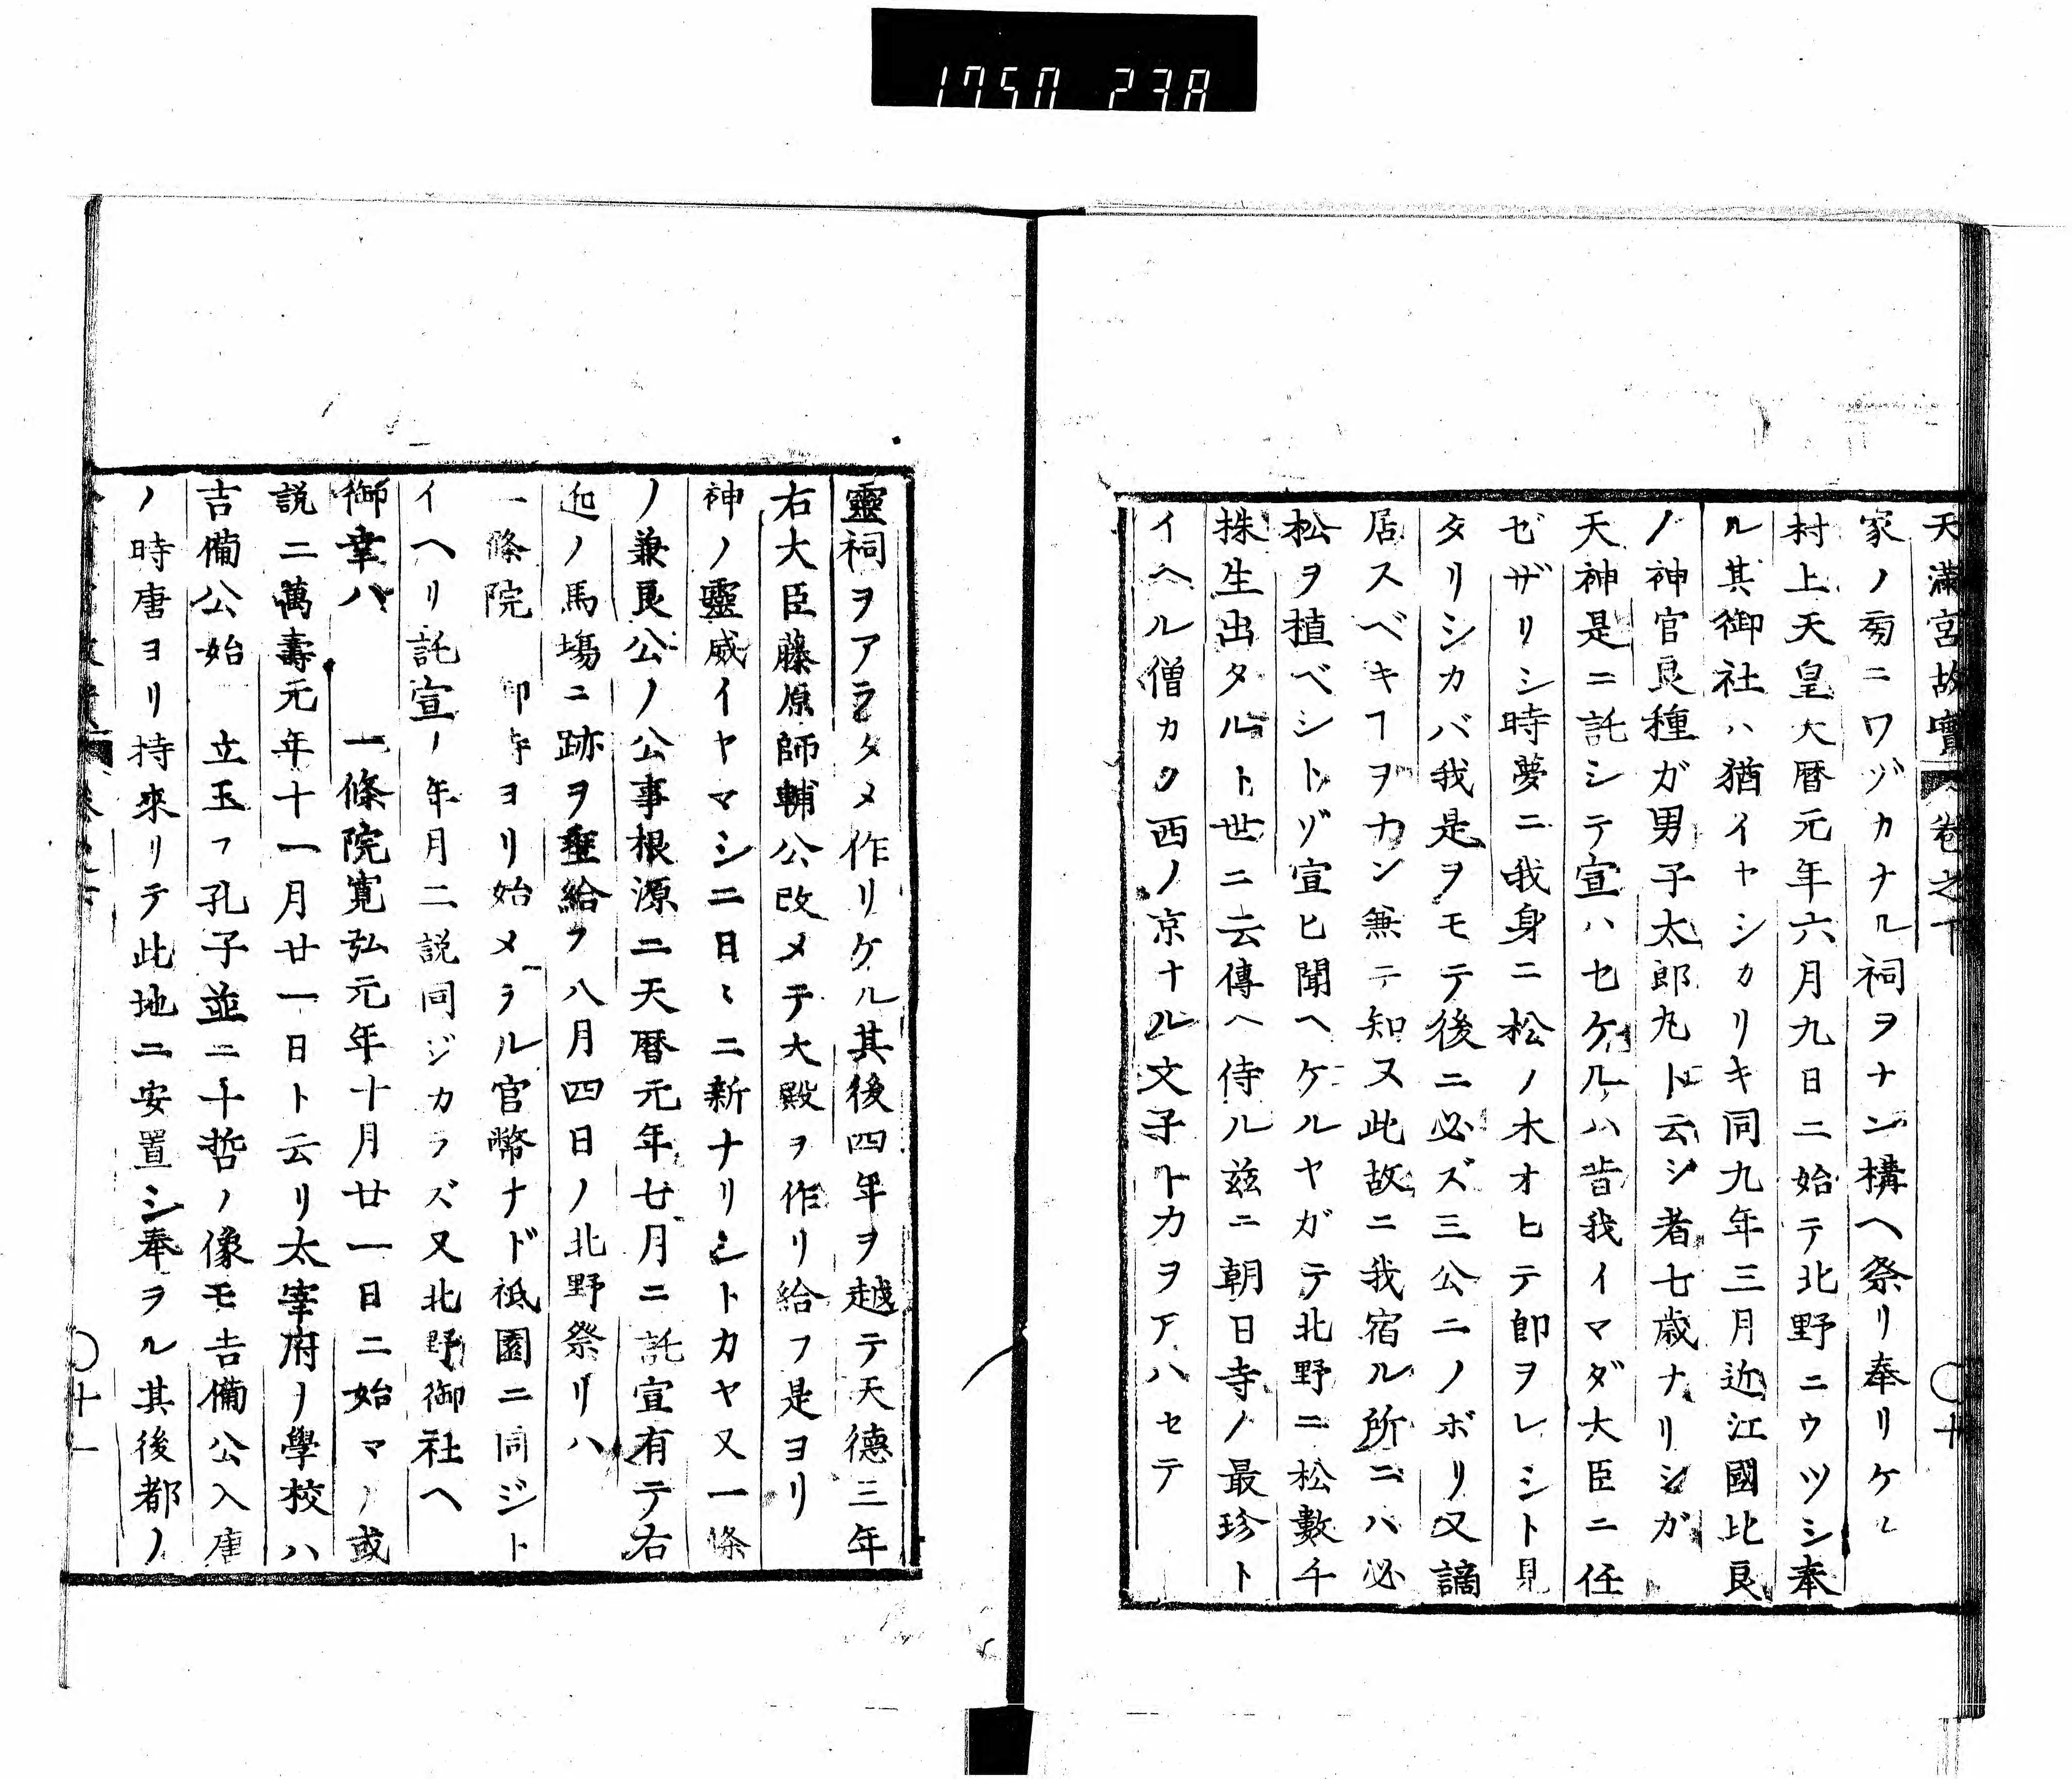 1750 238
天滿宮故實 卷之下 〇十
家ノ旁ニワヅカナル祠ヲナン構ヘ祭リ奉リケル
村上天皇天曆元年六月九日ニ始テ北野ニウツシ奉
ル其御社ハ猶イヤシカリキ同九年三月近江國比良
ノ神官良種ガ男子太郎丸ト云シ者七歳ナリシガ
天神是ニ託シテ宣ハセケルハ昔我イマダ大臣ニ任
ゼザリシ時夢ニ我身ニ松ノ木オヒテ即ヲレシト見
タリシカバ我是ヲモテ後ニ必ズ三公ニノボリ又謫
居スベキヿヲカン兼テ知ヌ此故ニ我宿ル所ニハ必
松ヲ植ベシトゾ宣ヒ聞ヘケルヤガテ北野ニ松數千
株生出タルト世ニ云傳ヘ侍ル茲ニ朝日寺ノ最珍ト
イヘル僧カク西ノ京ナル文子トカヲアハセテ
靈祠ヲアラタメ作リケル其後四年ヲ越テ天德三年
右大臣藤原師輔公改メテ大殿ヲ作リ給フ是ヨリ
神ノ靈威イヤマシニ日々ニ新ナリシトカヤ又一條
ノ兼良公ノ公事根源ニ天曆元年七月ニ託宣有テ右
近ノ馬塲ニ跡ヲ垂給フ八月四日ノ北野祭リハ
一條院 御寺ヨリ始メラル官幣ナド祗園ニ同ジト
イヘリ託宣ノ年月二説同ジカラズ又北野御社ヘ
御幸ハ 一條院寛弘元年十月廿一日ニ始マル或
説ニ萬壽元年十一月廿一日ト云リ太宰府ノ學校ハ
吉備公始 立玉フ孔子並ニ十哲ノ像モ吉備公入唐
ノ時唐ヨリ持來リテ此地ニ安置シ奉ヲル其後都ノ
〇十一